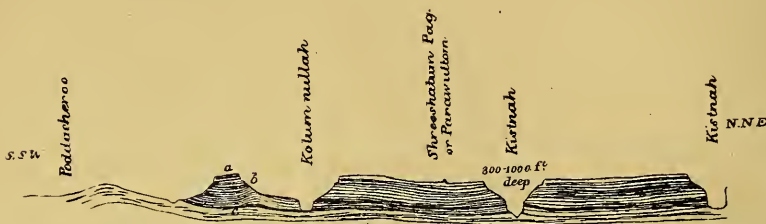 S.S.W
Poddacheroo
a
b
c
Kolum nullah
Shreeshalum Pag.
or Parawuttom.
Kistnah
800-1000 ft
deep
Kistnah
N.NE